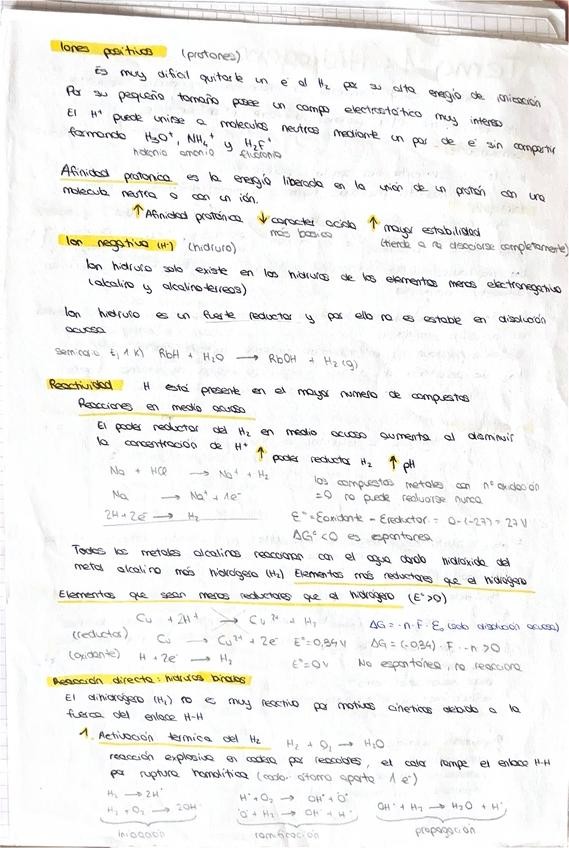 Iones positivos (protones)
Es muy dificil quitarle un e⁻ al H₂ por su alta energía de ionización
Por su pequeño tamaño posee un campo electrostático muy intenso
El H⁺ puede unirse a moleculas neutras mediante un par de e⁻ sin compartir
formando H₃O⁺, NH₄⁺ y H₂F⁺
hidronio amonio fluoronio
Afinidad protonica es la energía liberada en la unión de un protón con una
molecula neutra o con un ión.
↑ Afinidad protónica ↓ caracter acido ↑ mayor estabilidad
más basico (tiende a no disociarse completamente)
Ion negativo (H⁻) (hidruro)
Ion hidruro solo existe en los hidruros de los elementos menos electronegativos
(alcalino y alcalinoterreos)
Ion hidruro es un fuerte reductor y por ello no es estable en disolución
acuosa
seminario t, 1 k) RbH + H₂O → RbOH + H₂ (g)
Reactividad H está presente en el mayor numero de compuestos
Reacciones en medio acuoso
El poder reductor del H₂ en medio acuoso aumenta al disminuir
la concentración de H⁺ ↑ poder reductor H₂ ↑ pH
Na + HCl → Na⁺ + H₂ los compuestos metales con nº oxidación
Na → Na⁺ + 1e⁻ =0 no puede reducirse nunca
2H + 2e⁻ → H₂ E° = Eoxidante - Ereductor = 0-(-2,7) = 2,7 V
ΔG° < 0 es espontanea
Todos los metales alcalinos reaccionan con el agua dando hidroxido del
metal alcalino más hidrogeno (H₂) Elementos más reductores que el hidrogeno
Elementos que sean menos reductores que el hidrogeno (E°>0)
Cu + 2H⁺ → Cu²⁺ + H₂ ΔG = -n·F·E₀ (solo disolución acuosa)
(reductor) Cu → Cu²⁺ + 2e⁻ E°=0,34V ΔG = (-0,34)·F·-n >0
(oxidante) H + 2e⁻ → H₂ E°=0V No espontánea, no reacciona
Reacción directa: hidruros binarios
El dihidrogeno (H₂) no es muy reactivo por motivos cineticos debido a la
fuerza del enlace H-H
1. Activación termica del H₂ H₂ + O₂ → H₂O
reacción explosiva en cadena por radicales, el calor rompe el enlace H-H
por ruptura homolítica (cada átomo aporta 1 e⁻)
H₂ → 2H· H· + O₂ → OH· + O· OH· + H₂ → H₂O + H·
H₂ + O₂ → 2OH· O· + H₂ → OH· + H·
iniciación ramificación propagación